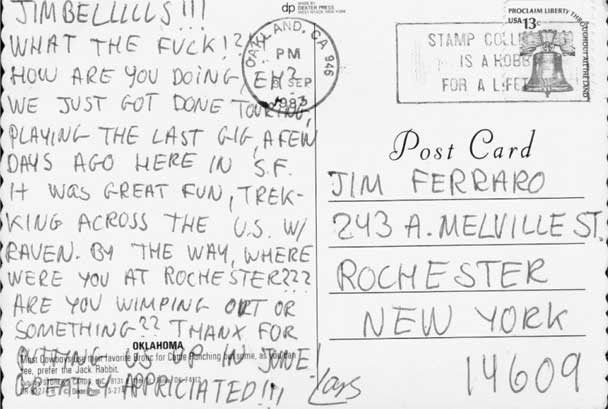 JIMBELLLLS!!!
WHAT THE FUCK!?!
HOW ARE YOU DOING EH?
WE JUST GOT DONE TOURING,
PLAYING THE LAST GIG, A FEW
DAYS AGO HERE IN S.F.
IT WAS GREAT FUN, TREK-
KING ACROSS THE U.S. W/
RAVEN. BY THE WAY, WHERE
WERE YOU AT ROCHESTER???
ARE YOU WIMPING OUT OR
SOMETHING?? THANX FOR
PUTTING US UP IN JUNE
GREATLY APPRICIATED!!!
Lars
OKLAHOMA
Most Cowboys use their favorite Bronc for Cattle Ranching but some, as you can
see, prefer the Jack Rabbit.
MADE BY
dp DEXTER PRESS
WEST NYACK, NEW YORK
OAKLAND, CA 946
PM
SEP
1983
STAMP
IS A HOBBY
FOR A
PROCLAIM LIBERTY THROUGHOUT ALL THE LAND
USA 13c
Post Card
JIM FERRARO
243 A. MELVILLE ST.
ROCHESTER
NEW YORK
14609